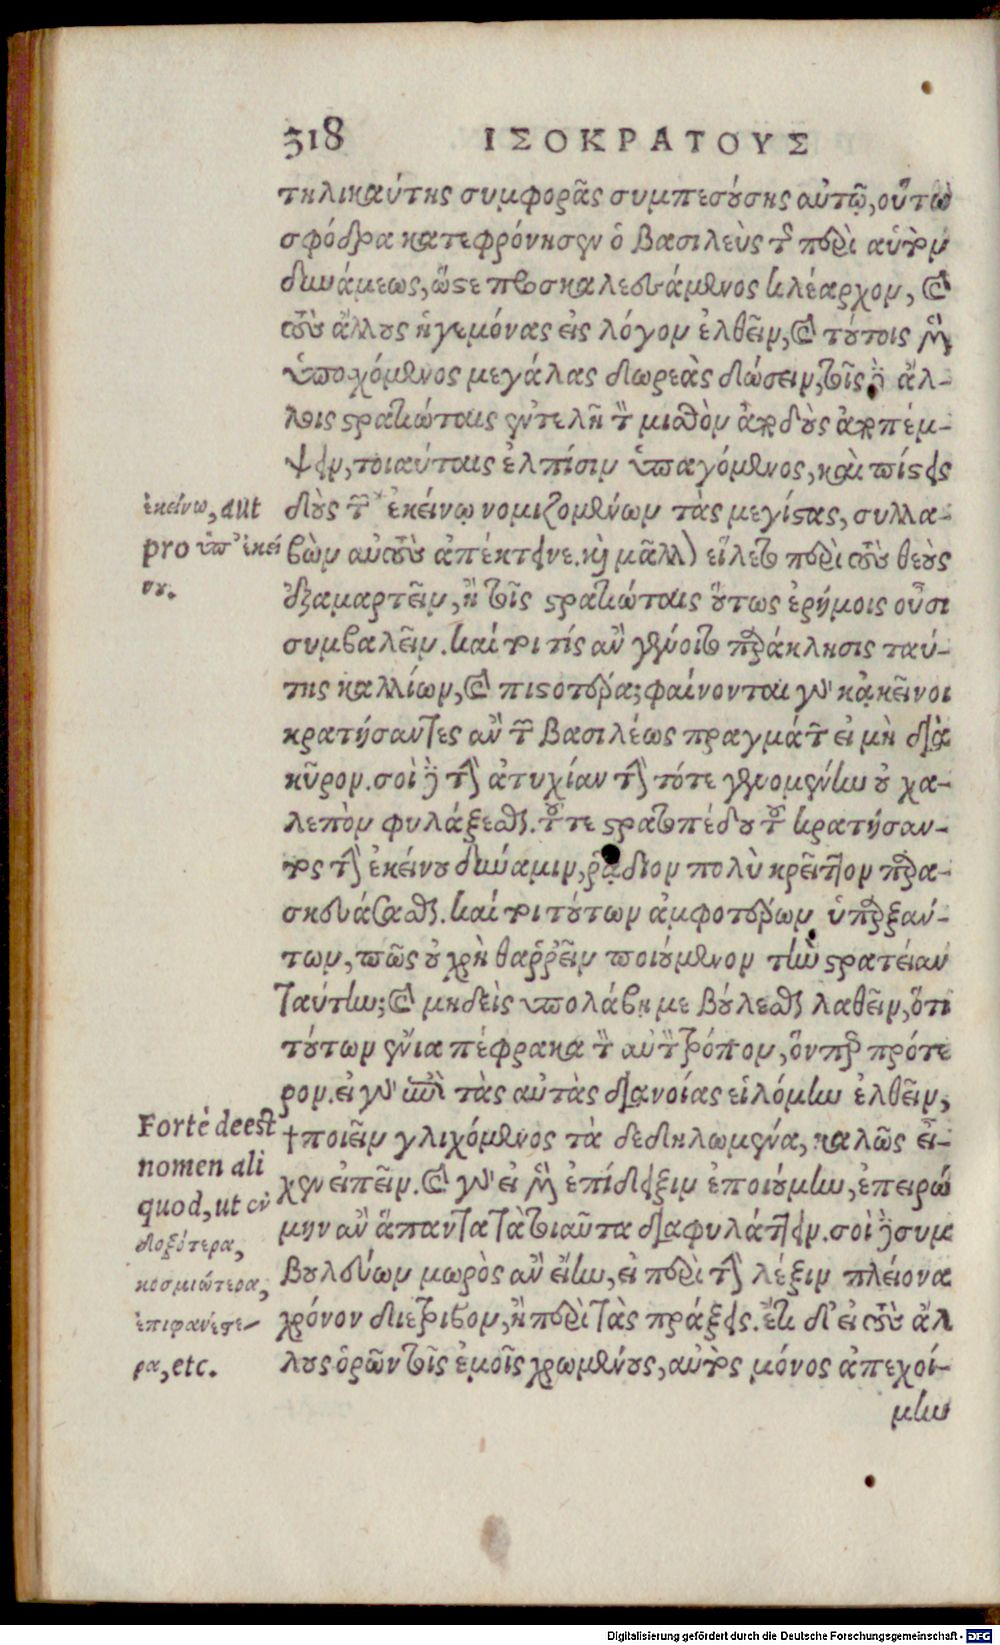 318 ΙΣΟΚΡΑΤΟΥΣ
τηλικαύτης συμφορᾶς συμπεσούσης αὐτῷ, οὕτω
σφόδρα κατεφρόνησεν ὁ βασιλεὺς τῆς περὶ αὑτὸν
δυνάμεως, ὥστε προσκαλεσάμενος κλέαρχον, καὶ
τοὺς ἄλλους ἡγεμόνας εἰς λόγον ἐλθεῖν, καὶ τούτοις μὲν
ὑποχόμενος μεγάλας δωρεὰς δώσειν, τοῖς δὲ ἄλ-
λοις στρατιώταις ἐντελῆ τὸν μισθὸν ἀποδοὺς ἀποπέμ-
ψειν, τοιαύταις ἐλπίσιν ὑπαγόμενος, καὶ πίστεις
δοὺς τῶν *ἐκείνῳ νομιζομένων τὰς μεγίστας, συλλα-
βὼν αὐτοὺς ἀπέκτεινε. καὶ μᾶλλον εἵλετο περὶ τοὺς θεοὺς
ἐξαμαρτεῖν, ἢ τοῖς στρατιώταις οὕτως ἐρήμοις οὖσι
συμβαλεῖν. καί τοι τίς ἂν γένοιτο παράκλησις ταύ-
της καλλίων, καὶ πιστοτέρα; φαίνονται γὰρ κἀκεῖνοι
κρατήσαντες ἂν τῶν βασιλέως πραγμάτων εἰ μὴ διὰ
κῦρον. σοὶ δὲ τὴν ἀτυχίαν τὴν τότε γενομένην οὐ χα-
λεπὸν φυλάξεσθαι. τοῦ τε στρατοπέδου τοῦ κρατήσαν-
τος τὴν ἐκείνου δύναμιν, ῥᾴδιον πολὺ κρεῖττον παρα-
σκευάσασθαι. καί τοι τούτων ἀμφοτέρων ὑπαρξάν-
των, πῶς οὐ χρὴ θαῤῥεῖν ποιούμενον τὴν στρατείαν
ταύτην; καὶ μηδεὶς ὑπολάβῃ με βούλεσθαι λαθεῖν, ὅτι
τούτων ἔνια πέφρακα τὸν αὐτὸν τρόπον, ὅνπερ πρότε
ρον. εἰ γὰρ ἐπὶ τὰς αὐτὰς διανοίας εἱλόμην ἐλθεῖν,
†ποιεῖν γλιχόμενος τὰ δεδηλωμένα, καλῶς εἶ-
χεν εἰπεῖν. καὶ γὰρ εἰ μὲν ἐπίδειξιν ἐποιούμην, ἐπειρώ
μην ἂν ἅπαντα τὰ τοιαῦτα διαφυλάττειν. σοὶ δὲ συμ
βουλεύων μωρὸς ἂν εἴην, εἰ περὶ τὴν λέξιν πλείονα
χρόνον διέτριβον, ἢ περὶ τὰς πράξεις. ἔτι δ' εἰ τοὺς ἄλ
λους ὁρῶν τοῖς ἐμοῖς χρωμένους, αὐτὸς μόνος ἀπεχοί-
μην
ἐκείνῳ, aut
pro ὑπ' ἐκεί
νου.
Fortè deest
nomen ali
quod, ut ἐν
δοξότερα,
κοσμιώτερα,
ἐπιφανέστε-
ρα, etc.
Digitalisierung gefördert durch die Deutsche Forschungsgemeinschaft - DFG